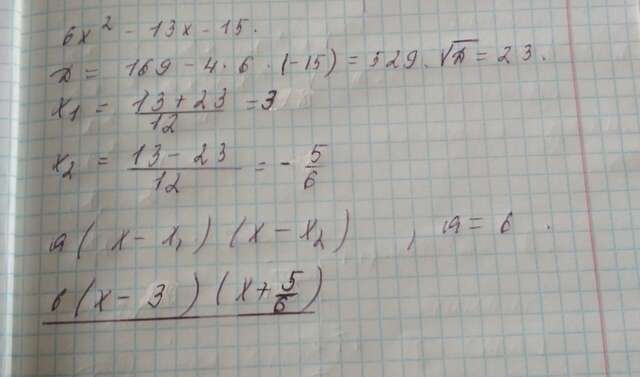 6x² - 13x - 15.
D = 169 - 4 · 6 · (-15) = 529. √D = 23.
x₁ = (13 + 23)/12 = 3
x₂ = (13 - 23)/12 = - 5/6
a(x - x₁)(x - x₂), a = 6.
6(x - 3)(x + 5/6)